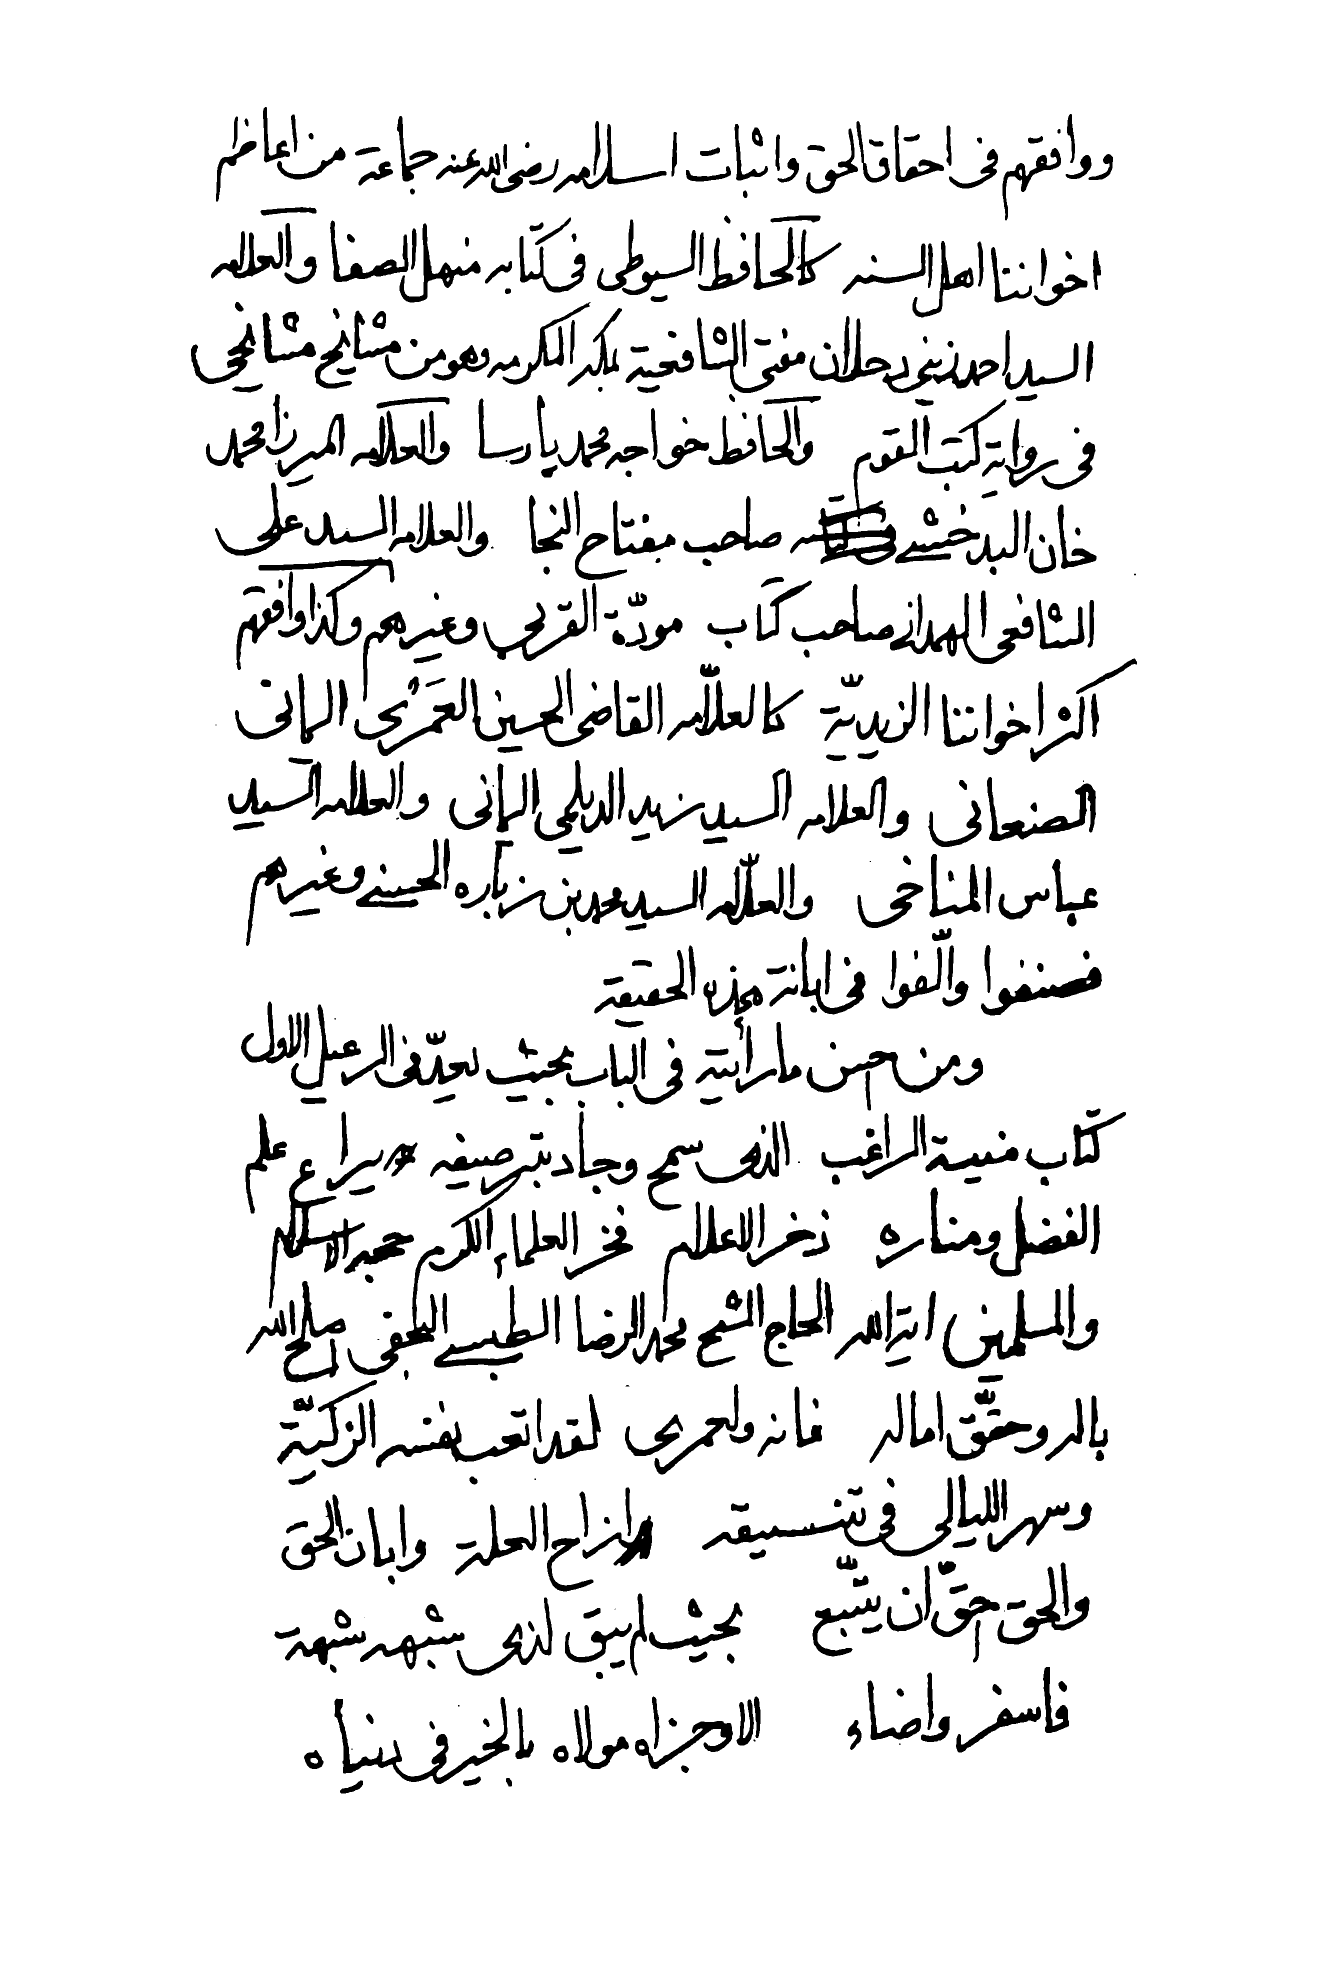 ووافقهم فى احقاق الحق واثبات اسلامه رضى الله عنه جماعة من اعاظم
اخواننا اهل السنه كالحافظ السيوطى فى كتابه منهل الصفا والعلامه
السيد احمد زينى دحلان مفتى الشافعية بمكة المكرمه وهو من مشايخ مشايخى
فى رواية كتب القوم والحافظ خواجه محمد پارسا والعلامه الميرزا محمد
خان البدخشى صاحب مفتاح النجا والعلامه السيد على
الشافعى الهمدانى صاحب كتاب مودّة القربى وغيرهم وكذا وافقهم
اكثر اخواننا الزيديّة كالعلّامه القاضى الحسين العَمْرى اليمانى
الصنعانى والعلامه السيد زيد الديلمى اليمانى والعلامه السيد
عباس المناخى والعلّامه السيد محمد بن زباره الحسينى وغيرهم
فصنفوا والّفوا فى ابانة هذه الحقيقة
ومن احسن ما رأيته فى الباب بحيث يعدّ فى الرعيل الاول
كتاب منية الراغب الذى سمح وجاد بترصيفه يراع علم
الفضل ومناره ذخر الاعلام فخر العلماء الكرام حجة الاسلام
والمسلمين اية الله الحاج الشيخ محمد الرضا الطبسى النجفى اصلح الله
باله وحقّق اماله فانه ولعمرى لقد اتعب نفسه الزكيّة
وسهر الليالى فى تنسيقه وازاح العلة وابان الحق
والحق احقّ ان يتّبع بحيث لم يبق لذى شبهه شبهة
فاسفر واضاء الا وجزاه مولاه بالخير فى دنياه